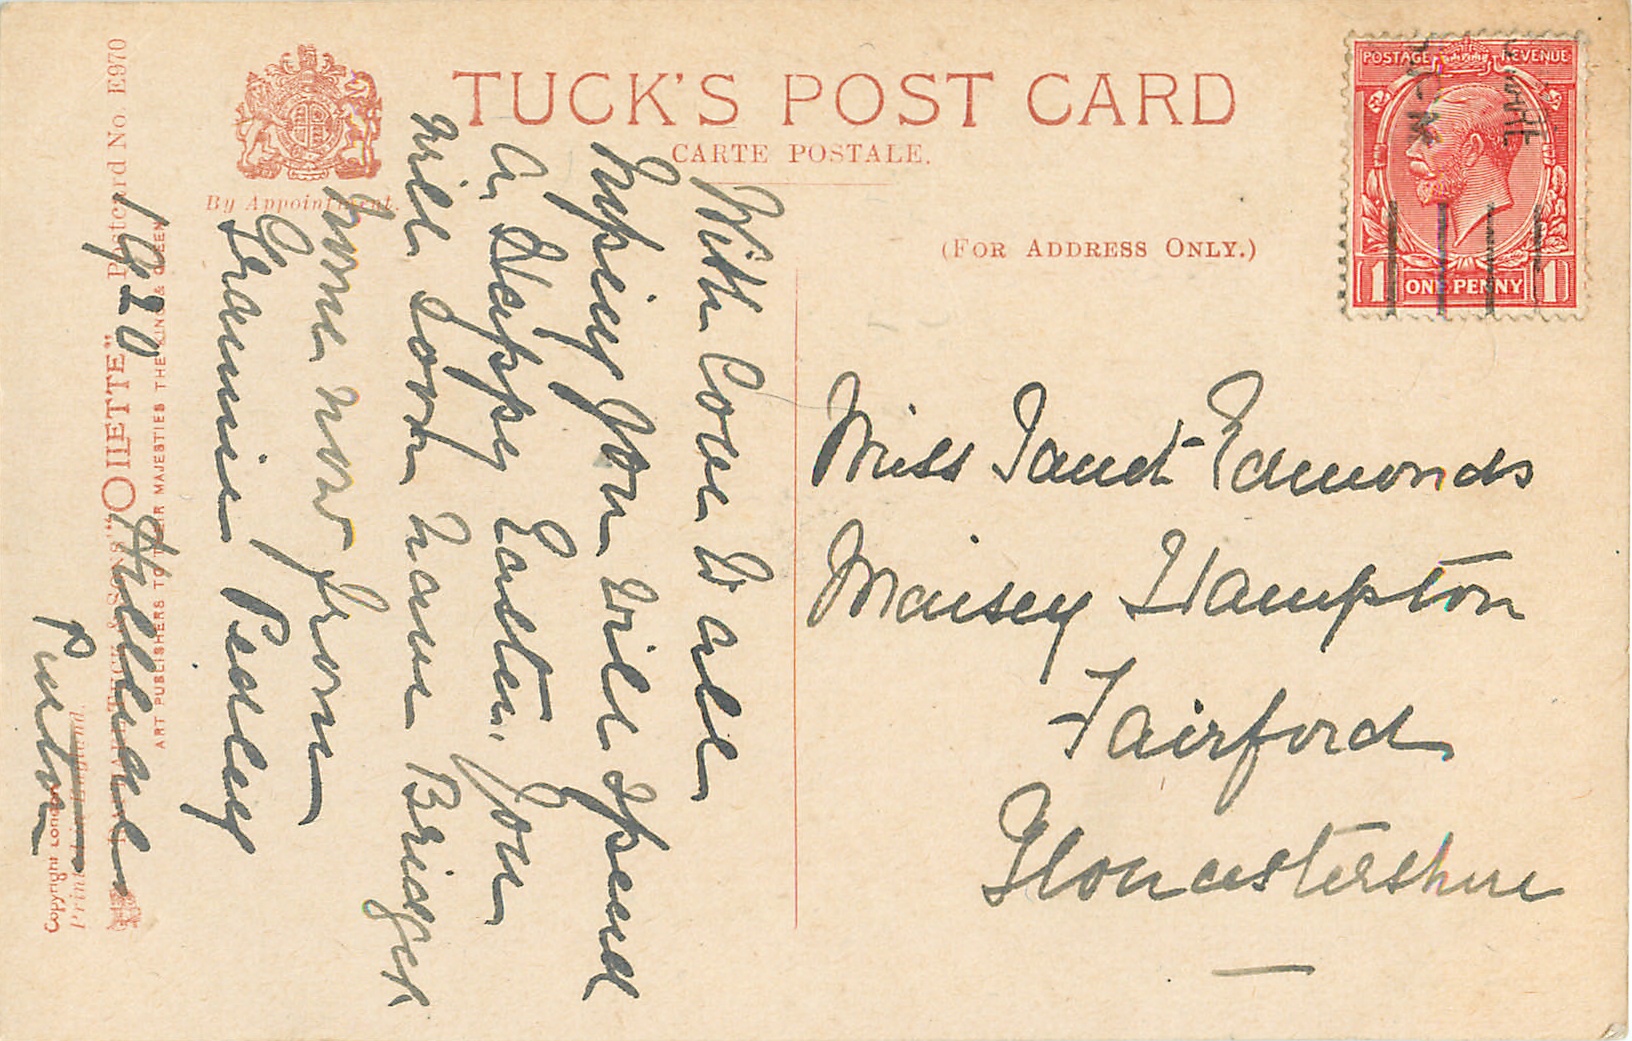 TUCK'S POST CARD
CARTE POSTALE.
By Appointment.
(FOR ADDRESS ONLY.)
POSTAGE REVENUE
1 ONE PENNY 1
Miss Janet Edmonds
Maisey Hampton
Fairford
Gloucestershire
With Love to all
hoping you will spend
a Happy Easter, you
will soon have Bridget
home now from
Grannie Pedley
1920 Hillside
Purton
Postcard No. E970
ART PUBLISHERS TO THEIR MAJESTIES THE KING & QUEEN
RAPHAEL TUCK & SONS' "OILETTE"
Printed in England.
Copyright London